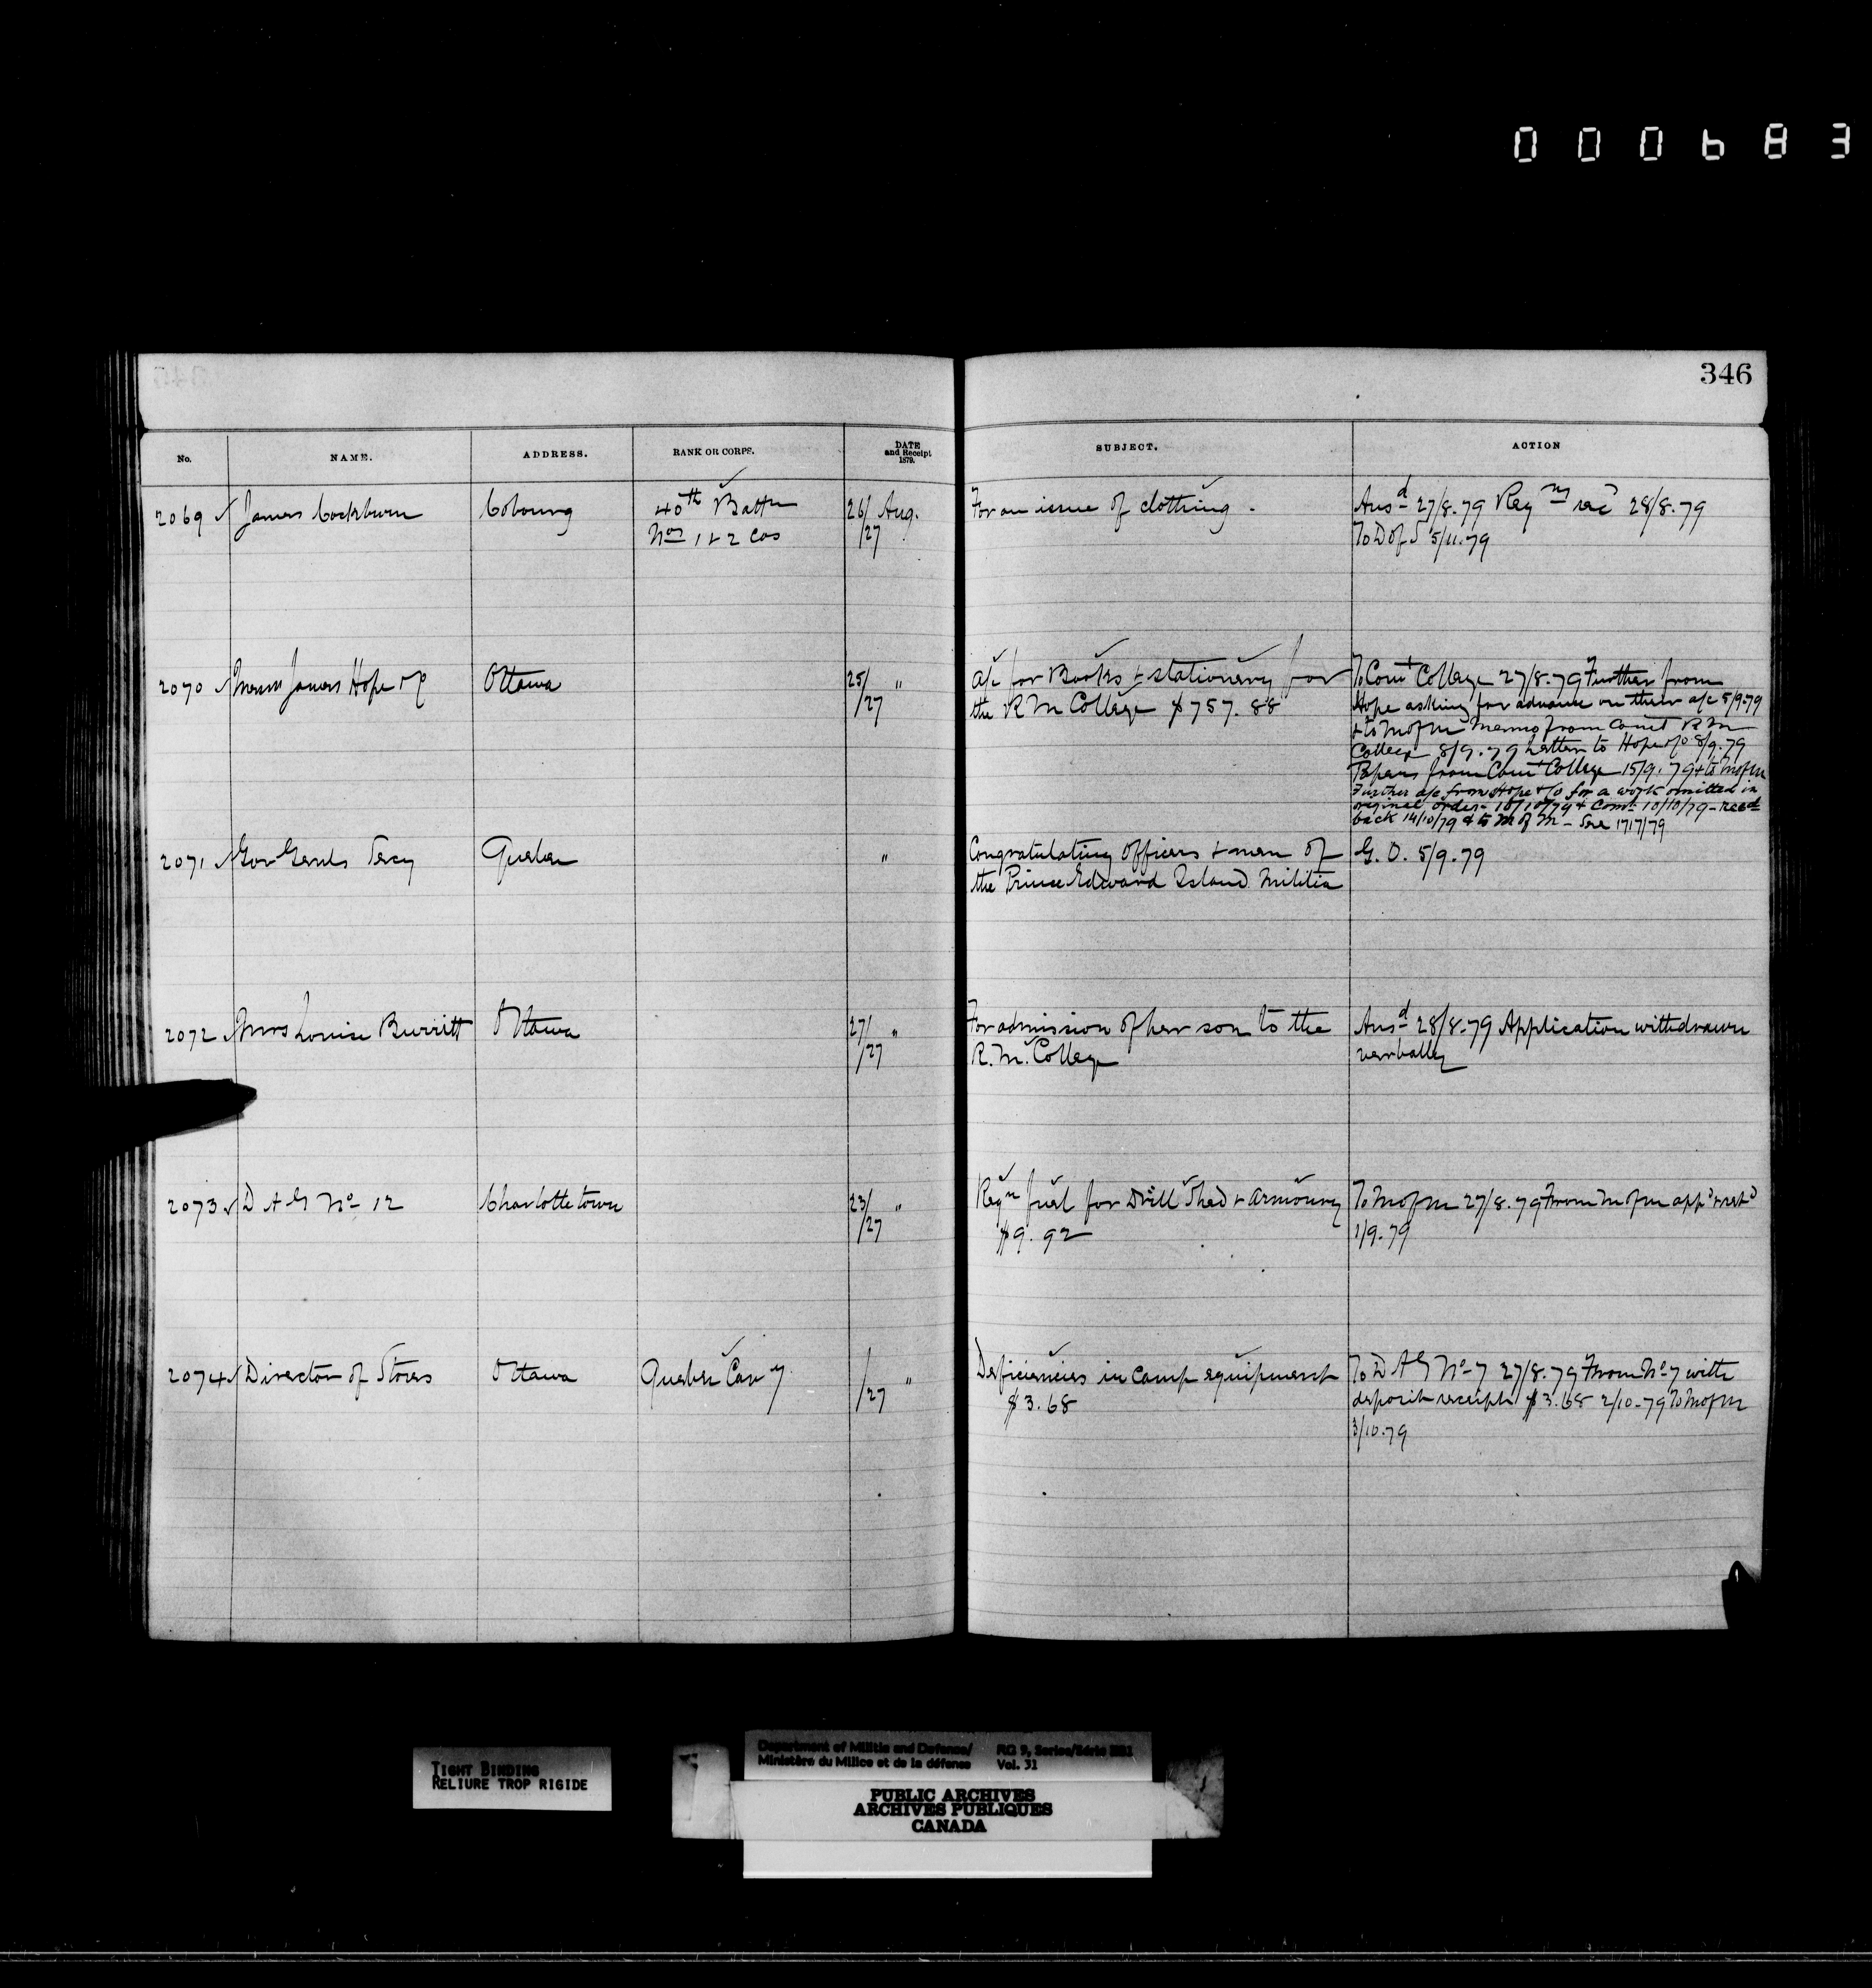 000683
346
No. NAME. ADDRESS. RANK OR CORPS. DATE and Receipt 1879. SUBJECT. ACTION
2069 James Cockburn Cobourg 40th Battn 26/ Aug. For an issue of clothing. Ansd 27/8.79 Reqn recd 28/8.79
Nos 1 & 2 Cos /27 To D of S 5/11.79
2070 Messrs James Hope & Co Ottawa 25/ " a/c for Books & stationery for To Comt College 27/8.79 Further from
/27 the R M College $757.88 Hope asking for advance on their a/c 5/9.79
& to M of M Memo from Comt R M
College 8/9.79 Letter to Hope & Co 8/9.79
Papers from Comt College 15/9.79 & to M of M
Further a/c from Hope & Co for a work omitted in
original order - 10/10/79 & Comt 10/10/79 - Recd
back 14/10/79 & to M of M - See 1717/79
2071 Gov Genls Secy Quebec " Congratulating Officers & men of G. O. 5/9.79
the Prince Edward Island Militia
2072 Mrs Louise Burritt Ottawa 27/ " For admission of her son to the Ansd 28/8.79 Application withdrawn
/27 R. M. College verbally
2073 D A G No 12 Charlottetown 23/ " Reqn fuel for Drill Shed & Armoury To M of M 27/8.79 From M of M appd & retd
/27 $9.92 1/9.79
2074 Director of Stores Ottawa Quebec Cavy /27 " Deficiencies in camp equipment To D A G No 7 27/8.79 From No 7 with
$3.68 deposit receipt $3.68 2/10.79 To M of M
3/10.79
TIGHT BINDING
RELIURE TROP RIGIDE
Department of Militia and Defence/ RG 9, Series/Série IIB1
Ministère du Milice et de la défense Vol. 31
PUBLIC ARCHIVES
ARCHIVES PUBLIQUES
CANADA